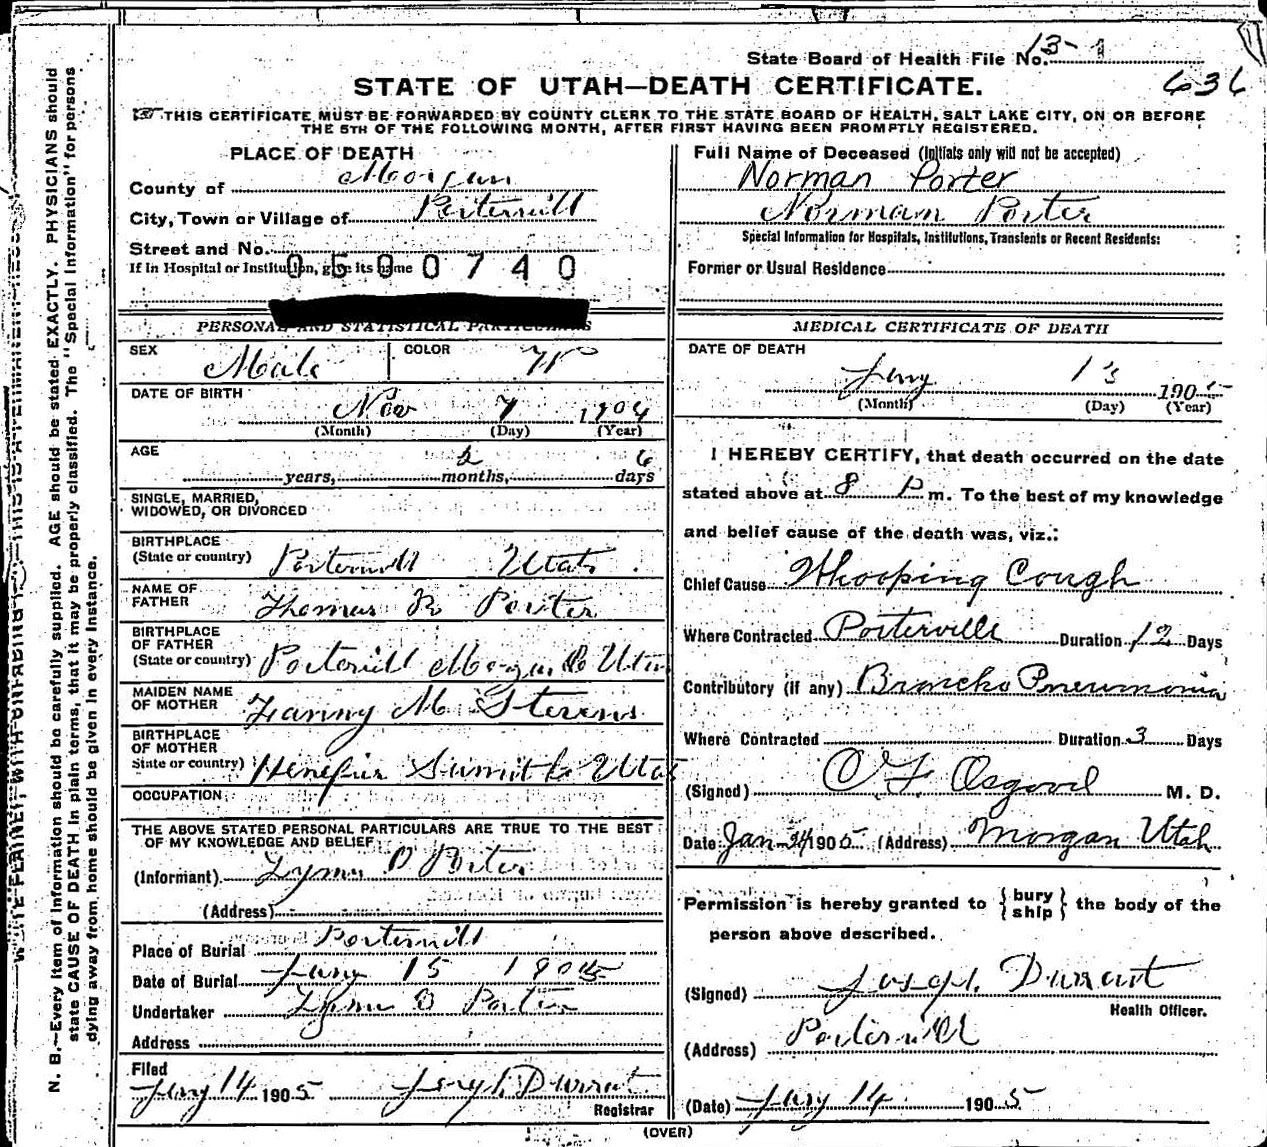 State Board of Health File No. 13-1
636
STATE OF UTAH—DEATH CERTIFICATE.
THIS CERTIFICATE MUST BE FORWARDED BY COUNTY CLERK TO THE STATE BOARD OF HEALTH, SALT LAKE CITY, ON OR BEFORE
THE 5TH OF THE FOLLOWING MONTH, AFTER FIRST HAVING BEEN PROMPTLY REGISTERED.
PLACE OF DEATH
County of Morgan
City, Town or Village of Portervill
Street and No.
If in Hospital or Institution, give its name
0500740
PERSONAL AND STATISTICAL PARTICULARS
SEX Male COLOR W
DATE OF BIRTH
Nov 7 1904
(Month) (Day) (Year)
AGE
years, 2 months, 6 days
SINGLE, MARRIED,
WIDOWED, OR DIVORCED
BIRTHPLACE
(State or country) Portervill Utah
NAME OF
FATHER Thomas R Porter
BIRTHPLACE
OF FATHER
(State or country) Portervill Morgan Co Utah
MAIDEN NAME
OF MOTHER Fanny M Stevens
BIRTHPLACE
OF MOTHER
State or country) Henefer Sumit Co Utah
OCCUPATION
THE ABOVE STATED PERSONAL PARTICULARS ARE TRUE TO THE BEST
OF MY KNOWLEDGE AND BELIEF
(Informant) Lyman O Porter
(Address)
Place of Burial Portervill
Date of Burial Jany 15 1905
Undertaker Lyman O Porter
Address
Filed
Jany 14 1905 Joseph Durrant
Registrar
Full Name of Deceased (Initials only will not be accepted)
Norman Porter
Norman Porter
Special Information for Hospitals, Institutions, Transients or Recent Residents:
Former or Usual Residence
MEDICAL CERTIFICATE OF DEATH
DATE OF DEATH
Jany 13 1905
(Month) (Day) (Year)
I HEREBY CERTIFY, that death occurred on the date
stated above at 8 P m. To the best of my knowledge
and belief cause of the death was, viz.:
Chief Cause Whooping Cough
Where Contracted Porterville Duration 12 Days
Contributory (if any) Broncho Pneumonia
Where Contracted Duration 3 Days
(Signed) O. F. Osgood M. D.
Date Jan 24 1905 (Address) Morgan Utah
Permission is hereby granted to {bury
ship} the body of the
person above described.
(Signed) Joseph Durrant
Health Officer.
(Address) Portervill
(Date) Jany 14 1905
(OVER)
N. B.—Every item of information should be carefully supplied. AGE should be stated EXACTLY. PHYSICIANS should
state CAUSE OF DEATH in plain terms, that it may be properly classified. The "Special Information" for persons
dying away from home should be given in every instance.